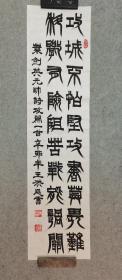 攻城不怕堅攻書莫畏難
科學有險阻苦戰能過關
葉劍英元帥詩攻關一首辛卯年王書